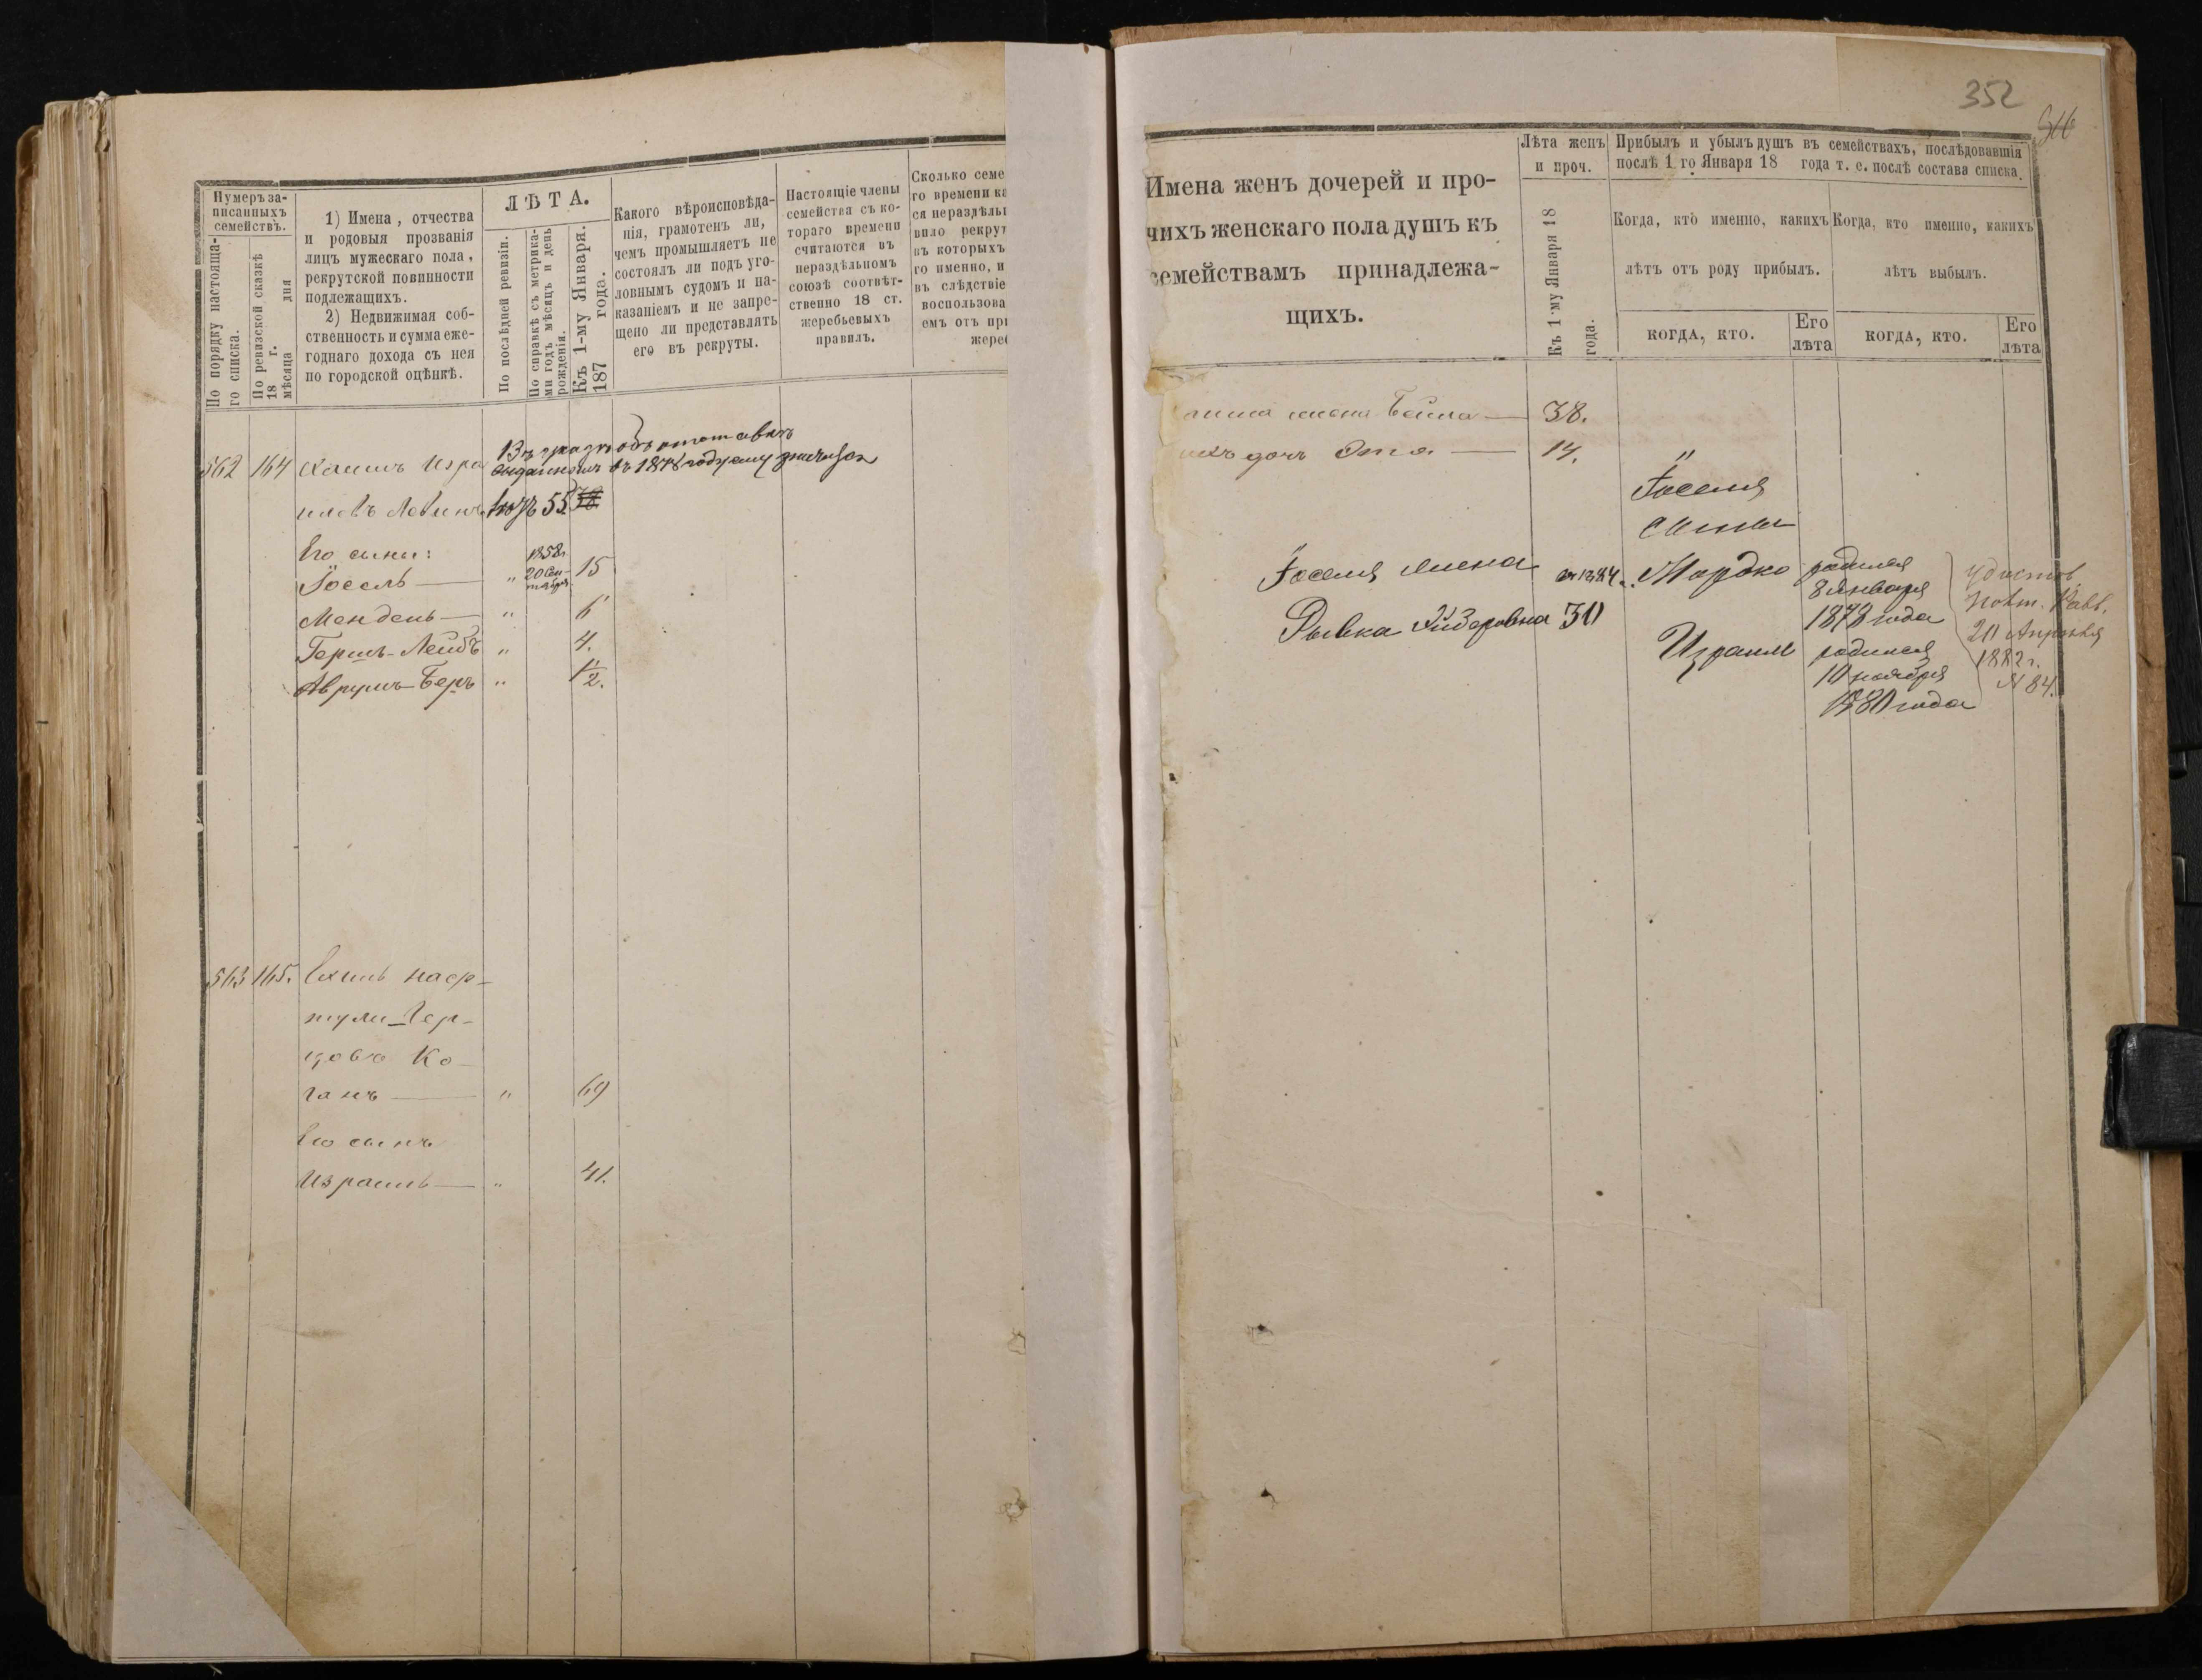 Нумеръ за-
писанныхъ
семействъ.
По порядку настояща-
го списка.
По ревизской сказкѣ
18 г.
мѣсяца дня
1) Имена, отчества
и родовыя прозванія
лицъ мужескаго пола,
рекрутской повинности
подлежащихъ.
2) Недвижимая соб-
ственность и сумма еже-
годнаго дохода съ нея
по городской оцѣнкѣ.
ЛѢТА.
По послѣдней ревизіи.
По справкѣ съ метрика-
ми годъ мѣсяцъ и день
рожденія.
Къ 1-му Января.
187 года.
Какого вѣроисповѣда-
нія, грамотенъ ли,
чемъ промышляетъ не
состоялъ ли подъ уго-
ловнымъ судомъ и на-
казаніемъ и не запре-
щено ли представлять
его въ рекруты.
Настоящіе члены
семейства съ ко-
тораго времени
считаются въ
нераздѣльномъ
союзѣ соотвѣт-
ственно 18 ст.
жеребьевыхъ
правилъ.
Сколько семе
го времени ка
ся нераздѣль
вило рекрут
въ которыхъ
го именно, и
въ слѣдствіе
воспользова
емъ отъ при
жереб
въ 1874 году ему
562 164 Хаимъ Изра
илевъ Левинъ 55
Его сыны:
Іосель — " 1858 г. 20 Сен-тября 15
Мендель — " 6
Гершъ-Лейбъ " 4.
Аврумъ-Беръ " 1/2.
563 165.
Гер-
цовъ Ко-
ганъ — " 69
Его сынъ
Израиль — " 41.
352
Имена женъ дочерей и про-
чихъ женскаго пола душъ къ
семействамъ принадлежа-
щихъ.
Лѣта женъ
и проч.
Къ 1-му Января 18
года.
Прибылъ и убылъ душъ въ семействахъ, послѣдовавшія
послѣ 1 го Января 18 года т. е. послѣ состава списка.
Когда, кто именно, какихъ
лѣтъ отъ роду прибылъ.
когда, кто.
Его
лѣта
Когда, кто именно, какихъ
лѣтъ выбылъ.
когда, кто.
Его
лѣта
жена Бейла — 38.
ихъ дочь Эта — 14.
Іоселя
сыны
Іоселя жена къ 1884 г.
Рывка 30
Мордко родился
8 Января
1878 года
Израиль родился
10 ноября
1880 года
удостов.
Новт. Равв.
20 Апрѣля
1882 г.
№ 84.